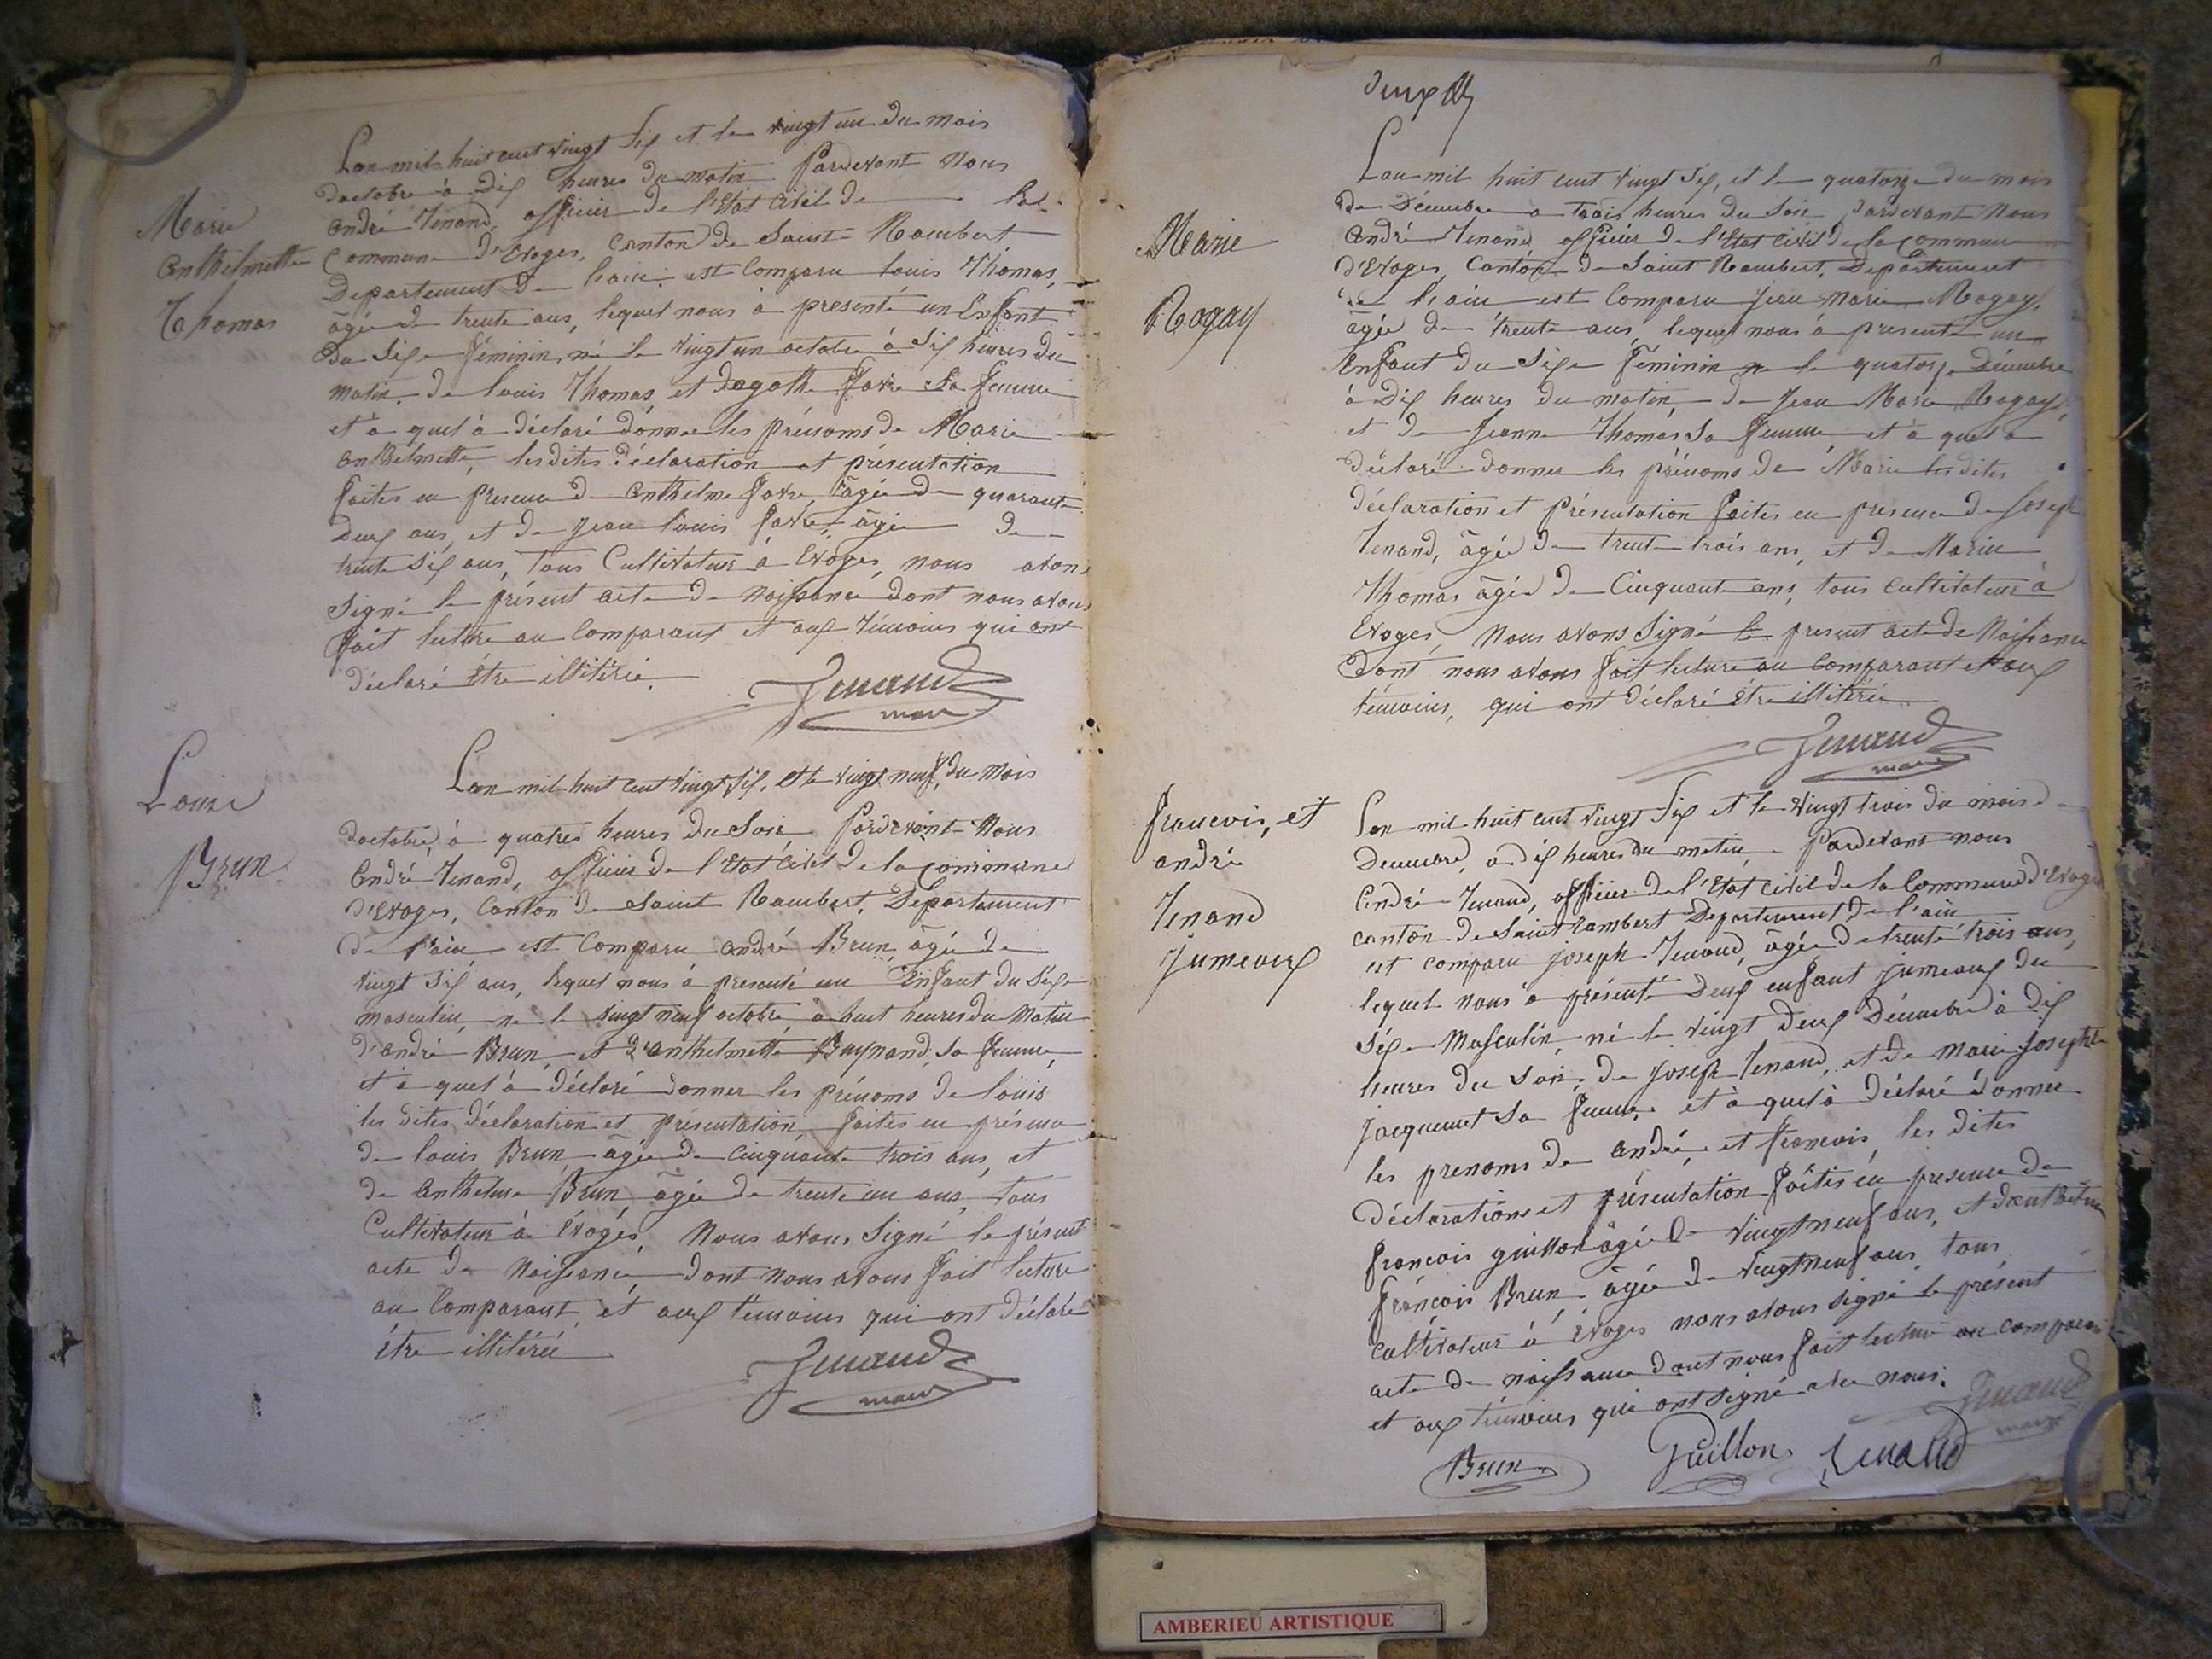 Marie
Anthelmette
Thomas
Lan mil huit cent vingt Six et le vingt un du mois
doctobre à dix heures du matin Pardevant nous
André Tenand, officier de l'Etat Civil de la
Commune d'Evoges, Canton de Saint Rambert
Departement De L'ain est Comparu Louis Thomas,
âgé de trente ans, lequel nous à presenté un Enfant
du Sexe Féminin, né le vingt un octobre à Six heures du
matin, de Louis Thomas et dagathe Favre Sa femme
et à quel à déclaré donner les prénoms de Marie
Anthelmette, les dites déclaration et présentation
faites en presence de Anthelme Favre, âgé de quarante
deux ans, et de Jean Louis Favre, âgé de
trente Six ans, Tous Cultivateur à Evoges, nous avons
Signé le présent acte de Naissance dont nous avons
fait lecture au Comparant et aux témoins qui ont
déclaré être illitéré.
Tenand
maire
Louis
Brun
Lan mil huit cent vingt Six, et le vingt neuf, du mois
doctobre, à quatres heures du Soir Pardevant Nous
André Tenand, officier de l'Etat Civil de la commune
d'Evoges, Canton de Saint Rambert, Departement
de l'ain est Comparu André Brun, âgé de
vingt Six ans, lequel nous à presenté un Enfant du Sexe
masculin, né le vingt neuf octobre, à huit heures du Matin
d'André Brun et d'Anthelmette Buynand, Sa femme,
et à quel à déclaré donner les prénoms de Loüis
les dites déclaration et présentation, faites en présence
de Louis Brun, âgé de Cinquante trois ans, et
de Anthelme Brun, âgé de trente un ans, Tous
Cultivateur à Evoges, Nous avons Signé le présent
acte de Naissance, dont nous avons fait lecture
au Comparant, et aux témoins qui ont déclaré
être illitéré
Tenand
maire
Marie
Rogay
Lan mil huit cent vingt Six, et le quatorze du mois
de Décembre à trois heures du Soir Pardevant Nous
André Tenand officier de l'Etat Civil de la Commune
d'Evoges, Canton de Saint Rambert, Departement
de l'ain est Comparu Jean Marie Rogay,
âgé de trente ans, lequel nous à presenté un
Enfant du Sexe Féminin né le quatorze Décembre
à dix heures du matin, de Jean Marie Rogay,
et de Jeanne Thomas Sa femme et à quel à
déclaré donner les prénoms de Marie les dites
déclaration et Présentation faites en presence de Joseph
Tenand, âgé de trente trois ans, et de Marin
Thomas âgé de Cinquante ans, tous cultivateur à
Evoges, Nous avons Signé le present acte de Naissance
dont nous avons fait lecture au Comparant et aux
témoins, qui ont déclaré être illitéré
Tenand
maire
francois, et
andré
Tenand
Jumeaux
Lan mil huit cent vingt Six et le vingt trois du mois de
Decembre, à dix heures du matin, Pardevant nous
André Tenand, officier de l'Etat Civil de la Commune d'Evoges
canton de Saint Rambert Departement de l'ain
est comparu Joseph Tenand, âgé de trente trois ans,
lequel nous à présenté Deux enfant jumeaux du
Sexe Masculin, né le vingt deux Décembre à dix
heures du Soir, de Joseph Tenand, et de Marie Josephte
Jacquemet Sa femme, et à quel à déclaré donner
les prenoms de André, et francois, les dites
déclarations et présentation faites en presence de
françois guillon âgé de vingt neuf ans, et danthelme
françois Brun, âgé de vingt neuf ans, tous
cultivateur à Evoges nous avons signé le présent
acte de naissance dont nous fait lecture au comparant
et aux témoins qui ont signé avec nous.
Tenand
maire
Brun
Guillon
Tenand
AMBERIEU ARTISTIQUE